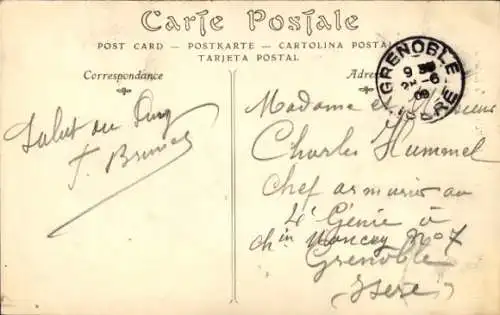 Carte Postale
POST CARD — POSTKARTE — CARTOLINA POSTALE
TARJETA POSTAL
Correspondance
Adres
GRENOBLE
ISERE
Salut au
F. Brunet
Madame et Monsieur
Charles Hummel
Chef armurier au
4e Génie à
chin Nancey No 7
Grenoble
Isere